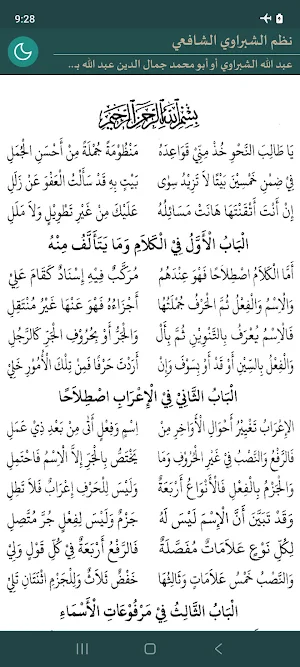 9:28
نظم الشبراوي الشافعي
عبد الله الشبراوي أو أبو محمد جمال الدين عبد الله بـ...
بِسْمِ اللَّهِ الرَّحْمَنِ الرَّحِيمِ
يَا طَالِبَ النَّحْوِ خُذْ مِنِّي قَوَاعِدَهُ مَنْظُومَةً جُمْلَةً مِنْ أَحْسَنِ الْجُمَلِ
فِي ضِمْنِ خَمْسِينَ بَيْتًا لَا تَزِيدُ سِوَى بَيْتٍ بِهِ قَدْ سَأَلْتُ الْعَفْوَ عَنْ زَلَلِ
إِنْ أَنْتَ أَتْقَنْتَهَا هَانَتْ مَسَائِلُهُ عَلَيْكَ مِنْ غَيْرِ تَطْوِيلٍ وَلَا مَلَلِ
الْبَابُ الْأَوَّلُ فِي الْكَلَامِ وَمَا يَتَأَلَّفُ مِنْهُ
أَمَّا الْكَلَامُ اصْطِلَاحًا فَهْوَ عِنْدَهُمُ مُرَكَّبٌ فِيهِ إِسْنَادٌ كَقَامَ عَلِيْ
وَالْاِسْمُ وَالْفِعْلُ ثُمَّ الْحَرْفُ جُمْلَتُهَا أَجْزَاؤُهُ فَهْوَ عَنْهَا غَيْرُ مُنْتَقِلِ
فَالْاِسْمُ يُعْرَفُ بِالتَّنْوِينِ ثُمَّ بِأَلْ وَالْجَرِّ أَوْ بِحُرُوفِ الْجَرِّ كَالرَّجُلِ
وَالْفِعْلُ بِالسِّينِ أَوْ قَدْ أَوْ بِسَوْفَ وَإِنْ أَرَدْتَ حَرْفًا فَمِنْ تِلْكَ الْأُمُورِ خَلِيْ
الْبَابُ الثَّانِيْ فِي الْإِعْرَابِ اصْطِلَاحًا
الْإِعْرَابُ تَغْيِيرُ أَحْوَالِ الْأَوَاخِرِ مِنْ اِسْمٍ وَفِعْلٍ أَتَى مِنْ بَعْدِ ذِي عَمَلِ
فَالرَّفْعُ وَالنَّصْبُ فِي غَيْرِ الْحُرُوفِ وَمَا يَخْتَصُّ بِالْجَرِّ إِلَّا الْاِسْمُ فَاحْتَمِلِ
وَالْجَزْمُ بِالْفِعْلِ فَالْأَنْوَاعُ أَرْبَعَةٌ وَلَيْسَ لِلْحَرْفِ إِعْرَابٌ فَلَا تَطِلِ
وَقَدْ تَبَيَّنَ أَنَّ الْاِسْمَ لَيْسَ لَهُ جَزْمٌ وَلَيْسَ لِفِعْلٍ جَرُّ مُتَّصِلِ
لِكُلِّ نَوْعٍ عَلَامَاتٌ مُفَصَّلَةٌ فَالرَّفْعُ أَرْبَعَةٌ فِي كُلِّ قَوْلِ وَلِيْ
وَالنَّصْبُ خَمْسُ عَلَامَاتٍ وَثَالِثُهَا خَفْضٌ ثَلَاثٌ وَلِلْجَزْمِ اثْنَتَانِ تَلِيْ
الْبَابُ الثَّالِثُ فِيْ مَرْفُوعَاتِ الْأَسْمَاءِ